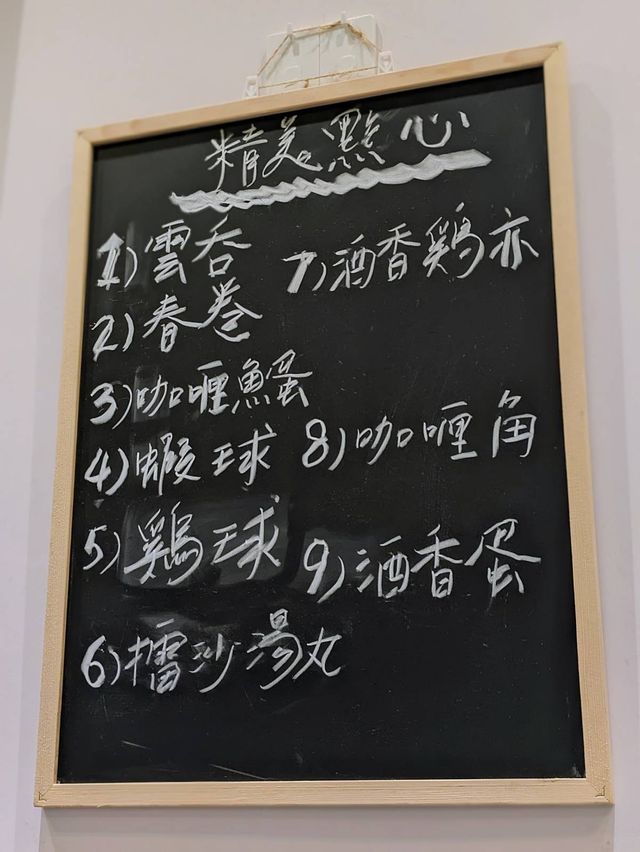 精美點心
1) 雲吞
2) 春卷
3) 咖喱魚蛋
4) 蝦球
5) 鷄球
6) 擂沙湯丸
7) 酒香鷄亦
8) 咖喱角
9) 酒香蛋